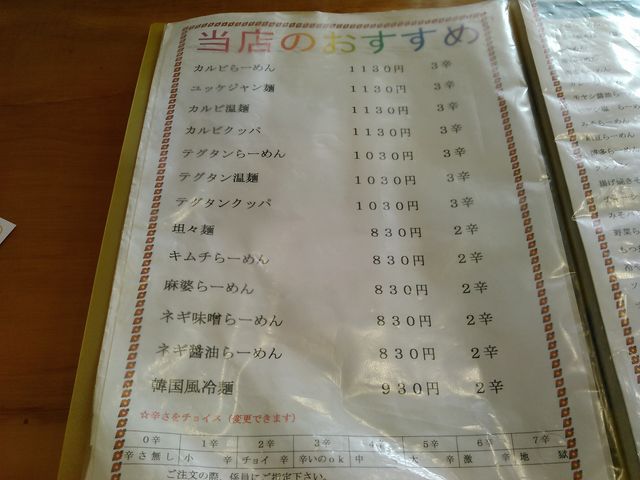 当店のおすすめ
カルビらーめん 1130円 3辛
ユッケジャン麺 1130円 3辛
カルビ温麺 1130円 3辛
カルビクッパ 1130円 3辛
テグタンらーめん 1030円 3辛
テグタン温麺 1030円 3辛
テグタンクッパ 1030円 3辛
坦々麺 830円 2辛
キムチらーめん 830円 2辛
麻婆らーめん 830円 2辛
ネギ味噌らーめん 830円 2辛
ネギ醤油らーめん 830円 2辛
韓国風冷麺 930円 2辛
☆辛さをチョイス(変更できます)
0辛 1辛 2辛 3辛 4辛 5辛 6辛 7辛
辛さ無し 小辛 チョイ辛 辛いのok 中辛 大辛 激辛 地獄
ご注文の際、係員にご指定下さい。